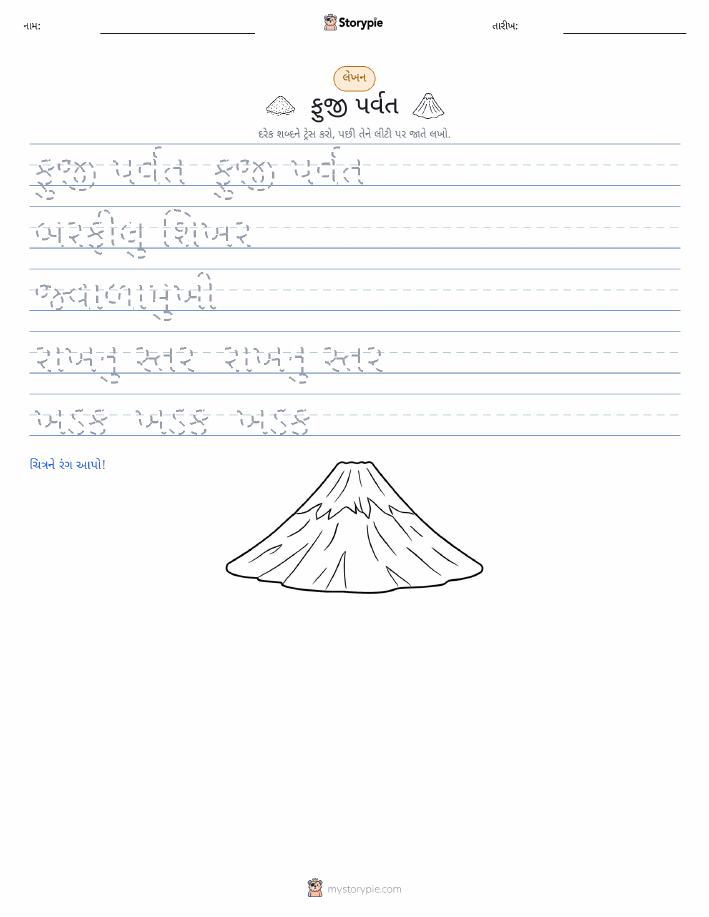 નામ:
Storypie
તારીખ:
લેખન
ફુજી પર્વત
દરેક શબ્દને ટ્રેસ કરો, પછી તેને લીટી પર જાતે લખો.
ફુજી પર્વત ફુજી પર્વત
બરફીલુ શિખર
જ્વાળામુખી
રાખનુ સ્તર રાખનુ સ્તર
ખડક ખડક ખડક
ચિત્રને રંગ આપો!
mystorypie.com